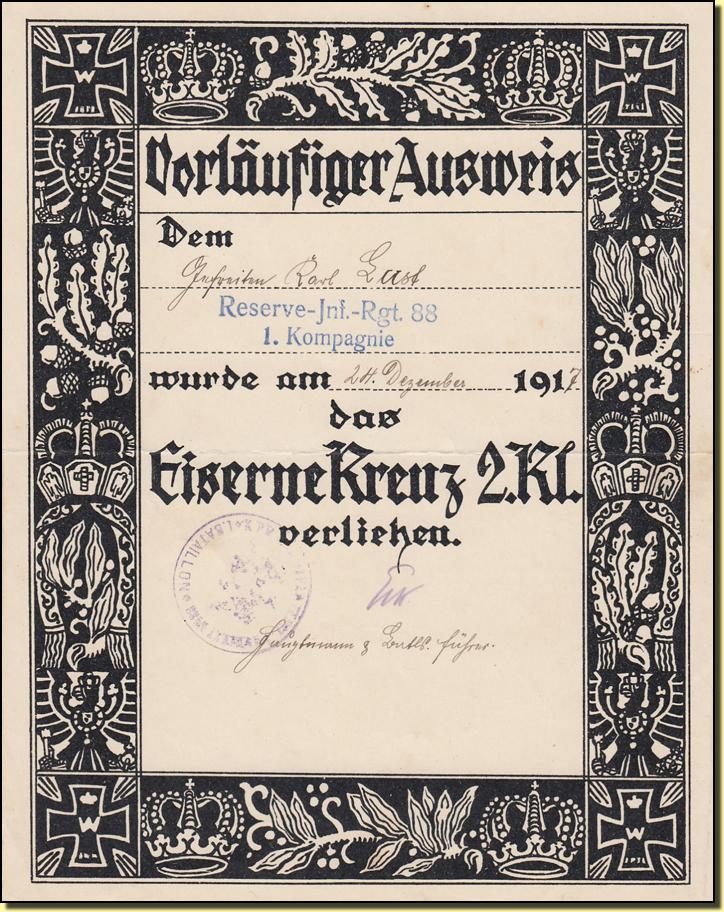 Vorläufiger Ausweis
Dem
Gefreiten Karl Lust
Reserve-Jnf.-Rgt. 88
1. Kompagnie
wurde am 24. Dezember 1917
das
Eiserne Kreuz 2. Kl.
verliehen.
BATAILLON
Hauptmann & Batls. führer.
W
W
W
W